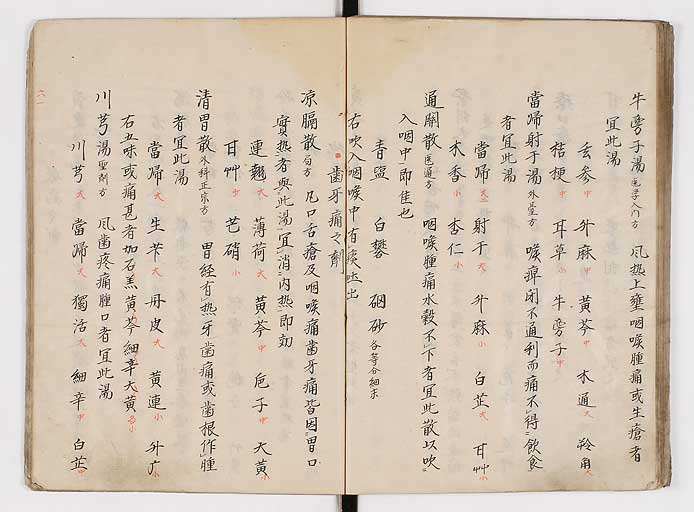 牛旁子湯 医学入门方 風热上壅咽喉腫痛或生瘡者
宜此湯
玄参中 升麻中 黄芩中 木通大 羚角大
桔梗中 甘草小 牛旁子中
當帰射干湯 外臺方 喉痺闭不通利而痛不得飲食
者宜此湯
當帰大 射干大 升麻小 白芷大 甘艸小
木香小 杏仁小
通關散 医通方 咽喉腫痛水穀不下者宜此散以吹
入咽中即佳也
青盬 白礬 硇砂 各等各細末
右吹入咽喉中有痰吐出
齒牙痛之劑
凉膈散 局方 凡口舌瘡及咽喉痛齒牙痛皆因胃口
實热者與此湯宜消内热即効
連翹大 薄荷大 黄芩中 巵子中 大黄小
甘艸 芒硝小
清胃散 外科正宗方 胃経有热牙齒痛或齒根作腫
者宜此湯
當帰大 生芐大 丹皮大 黄連小 升广小
右五味或痛甚者加石羔黄芩細辛大黄各小
川芎湯 聖剤方 風齒疼痛腫口者宜此湯
川芎大 當帰大 獨活大 細辛中 白芷中
六一